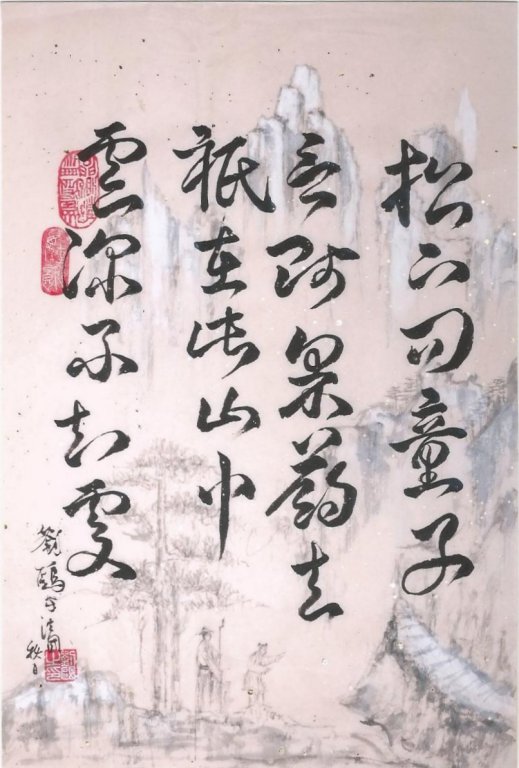 松下問童子
言師采藥去
祇在此山中
雲深不知處
秋日